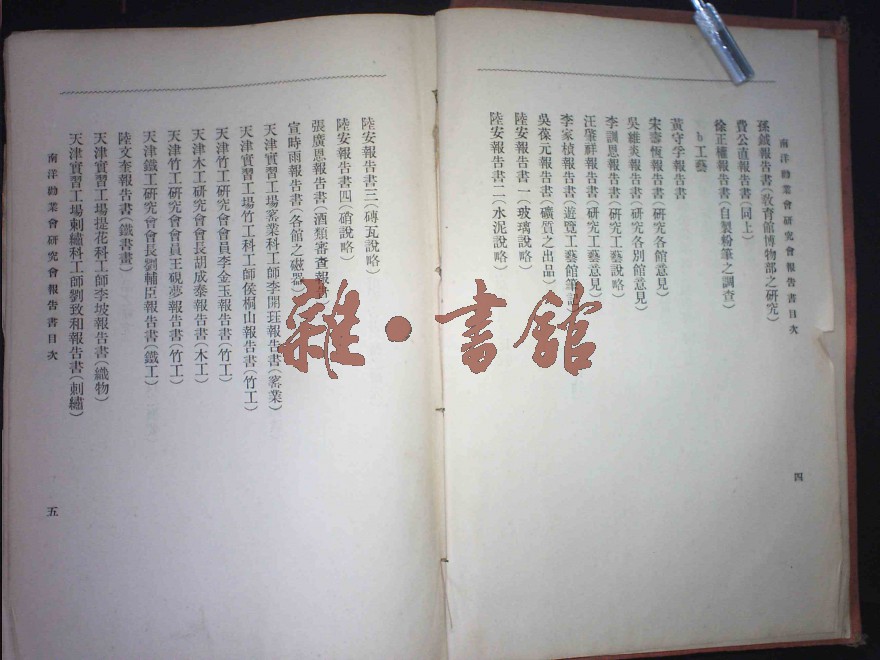 南洋勸業會研究會報告書目次
孫鉞報告書(敎育館博物部之研究)
費公直報告書(同上)
徐正權報告書(自製粉筆之調查)
b 工藝
黃守孚報告書
宋壽恆報告書(研究各館意見)
吳維炎報告書(研究各別館意見)
李訓恩報告書(研究工藝說略)
汪肇祥報告書(研究工藝意見)
李家楨報告書(遊覽工藝館筆記
吳葆元報告書(礦質之出品)
陸安報告書一(玻璃說略)
陸安報告書二(水泥說略)
四
陸安報告書三(磚瓦說略)
陸安報告書四(硝說略)
張廣恩報告書(酒類審查報告
宣時雨報告書(各館之磁器)
天津實習工場窰業科工師李開珏報告書(窰業)
天津實習工場竹工科工師侯桐山報告書(竹工)
天津竹工硏究會會員李金玉報告書(竹工)
天津木工研究會會長胡成泰報告書(木工)
天津竹工研究會會員王硯夢報告書(竹工)
天津鐵工研究會會長劉輔臣報告書(鐵工)
陸文奎報告書(鐵書畫)
天津實習工場提花科工師李坡報告書(織物)
天津實習工場刺繡科工師劉致和報告書(刺繡)
南洋勸業會研究會報告書目次
五
雜·書館